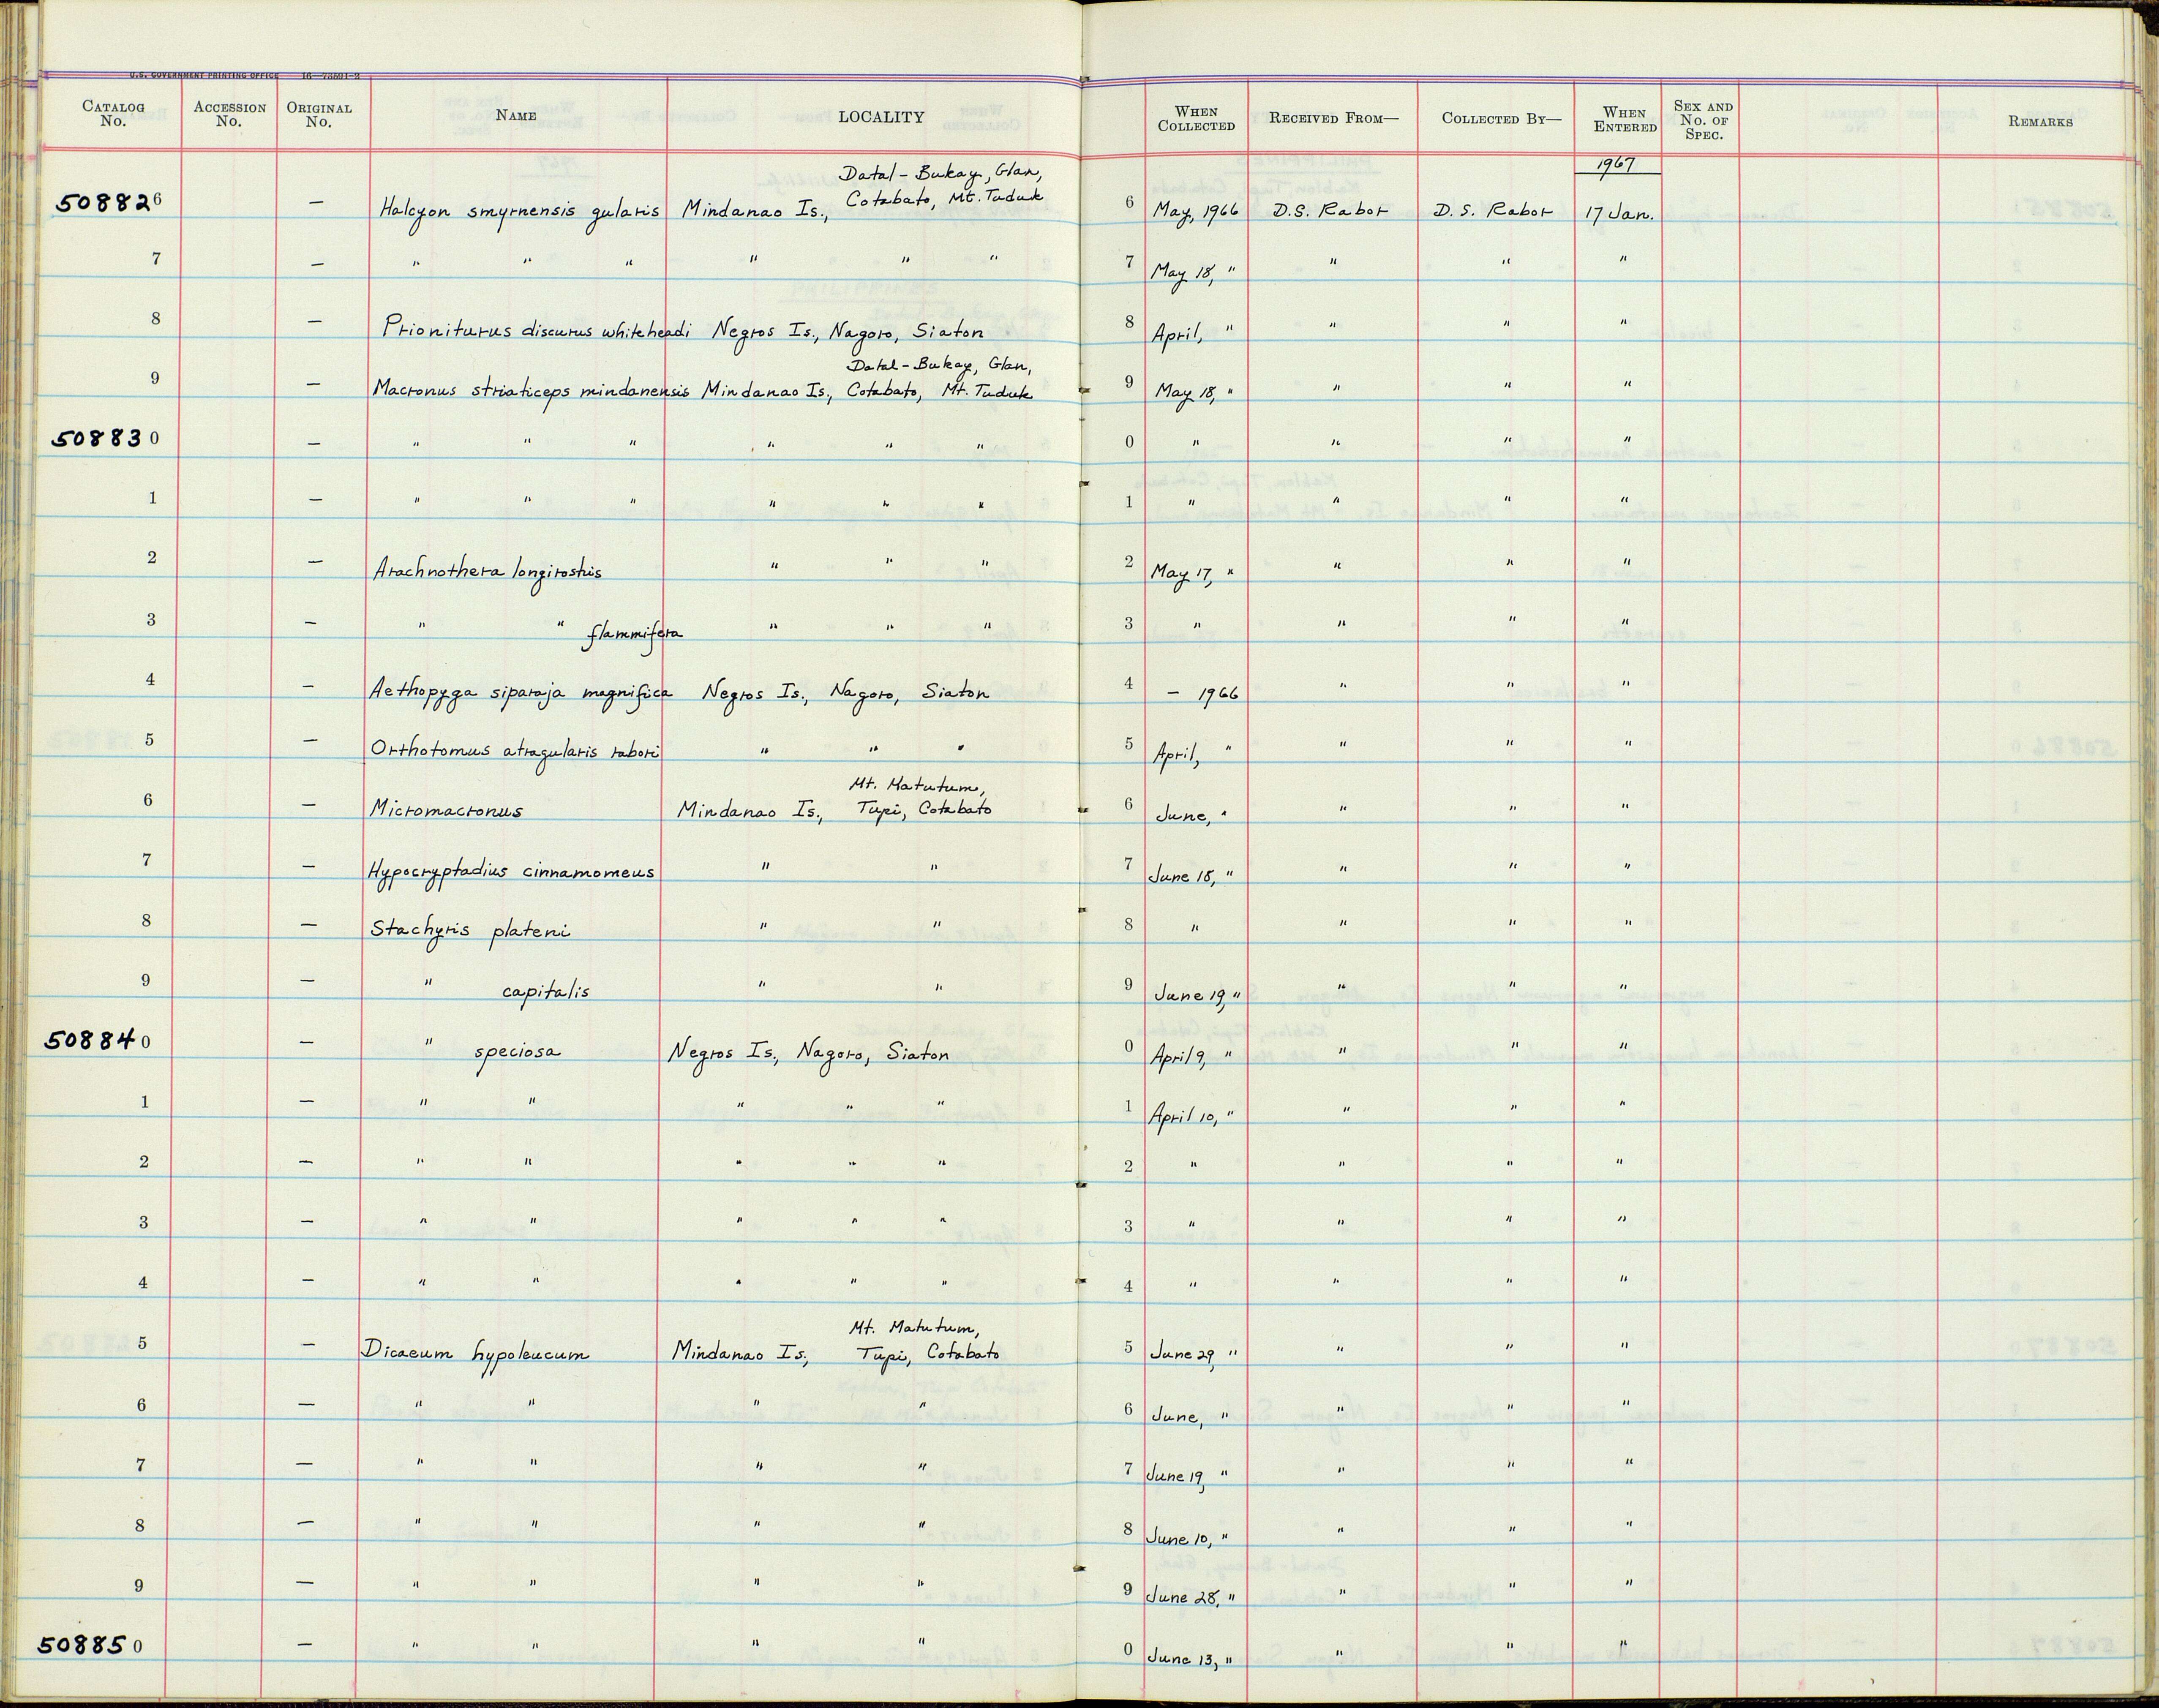 U.S. GOVERNMENT PRINTING OFFICE 16—73591-2
CATALOG No. ACCESSION No. ORIGINAL No. NAME LOCALITY WHEN COLLECTED RECEIVED FROM— COLLECTED BY— WHEN ENTERED SEX AND No. OF SPEC. REMARKS
1967
Datal-Bukay, Glan,
508826 — Halcyon smyrnensis gularis Mindanao Is., Cotabato, Mt. Tuduk 6 May, 1966 D.S. Rabor D.S. Rabor 17 Jan.
7 — " " " " " " 7 May 18, " " " "
8 — Prioniturus discurus whiteheadi Negros Is., Nagoro, Siaton 8 April, " " " "
Datal-Bukay, Glan,
9 — Macronus striaticeps mindanensis Mindanao Is., Cotabato, Mt. Tuduk 9 May 18, " " " "
508830 — " " " " " " 0 " " " "
1 — " " " " " " 1 " " " "
2 — Arachnothera longirostris " " " 2 May 17, " " " "
3 — " " flammifera " " " 3 " " " "
4 — Aethopyga siparaja magnifica Negros Is., Nagoro, Siaton 4 — 1966 " " "
5 — Orthotomus atragularis rabori " " " 5 April, " " " "
Mt. Matutum,
6 — Micromacronus Mindanao Is., Tupi, Cotabato 6 June, " " " "
7 — Hypocryptadius cinnamomeus " " 7 June 18, " " " "
8 — Stachyris plateni " " 8 " " " "
9 — " capitalis " " 9 June 19, " " " "
508840 — " speciosa Negros Is., Nagoro, Siaton 0 April 9, " " " "
1 — " " " " " 1 April 10, " " " "
2 — " " " " " 2 " " " "
3 — " " " " " 3 " " " "
4 — " " " " " 4 " " " "
Mt. Matutum,
5 — Dicaeum hypoleucum Mindanao Is., Tupi, Cotabato 5 June 29, " " " "
6 — " " " " 6 June, " " " "
7 — " " " " 7 June 19, " " " "
8 — " " " " 8 June 10, " " " "
9 — " " " " 9 June 28, " " " "
508850 — " " " " 0 June 13, " " " "